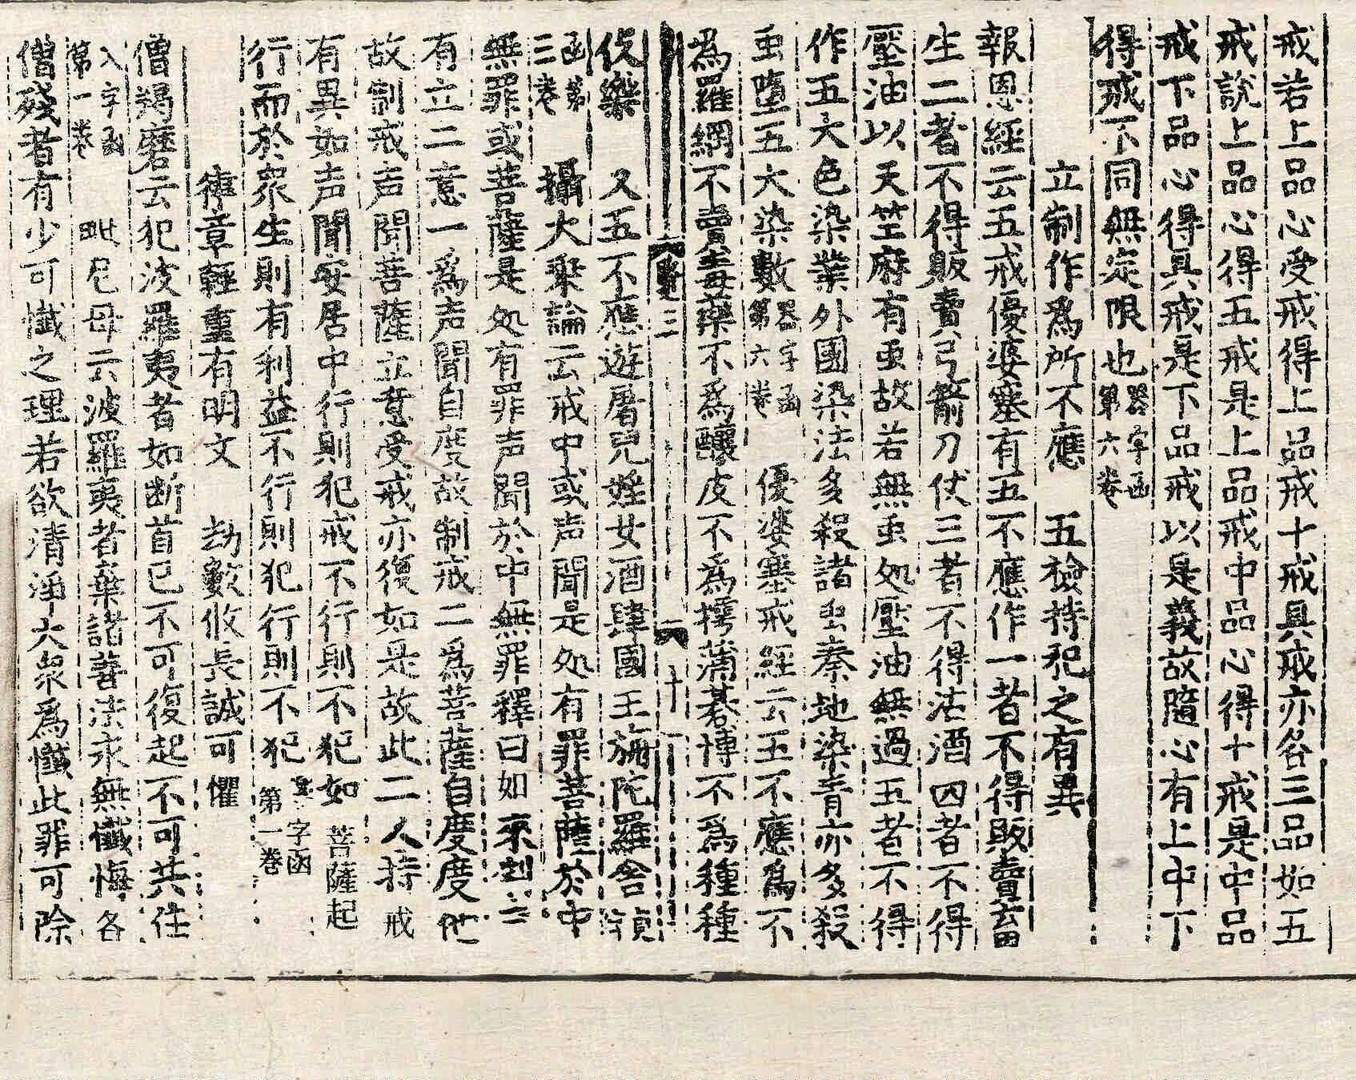 戒若上品心受戒得上品戒十戒具戒亦各三品如五
戒說上品心得五戒是上品戒中品心得十戒是中品
戒下品心得具戒是下品戒以是義故隨心有上中下
得戒不同無定限也器字函第六卷
立制作為所不應 五檢持犯之有異
報恩經云五戒優婆塞有五不應作一者不得販賣畜
生二者不得販賣弓箭刀仗三者不得沽酒四者不得
壓油以天竺麻有虫故若無虫処壓油無過五者不得
作五大色染業外國染法多殺諸虫秦地染青亦多殺
虫墮五大染數器字函第六卷 優婆塞戒經云五不應為不
為羅網不賣毒藥不為釀皮不為樗蒲碁博不為種種
三 十
伎樂 又五不應遊屠兒婬女酒肆國王旃陀羅舍
函第三卷 攝大乘論云戒中或声聞是処有罪菩薩於中
無罪或菩薩是処有罪声聞於中無罪釋曰如來制戒
有立二意一為声聞自度故制戒二為菩薩自度度他
故制戒声聞菩薩立意受戒亦復如是故此二人持戒
有異如声聞安居中行則犯戒不行則不犯如菩薩起
行而於衆生則有利益不行則犯行則不犯 字函第一卷
陳章輕重有明文 劫數攸長誠可懼
僧羯磨云犯波羅夷者如断首已不可復起不可共住
入字函第一卷 毗尼母云波羅夷者棄諸善法永無懺悔各
僧殘者有少可懺之理若欲清淨大衆為懺此罪可除